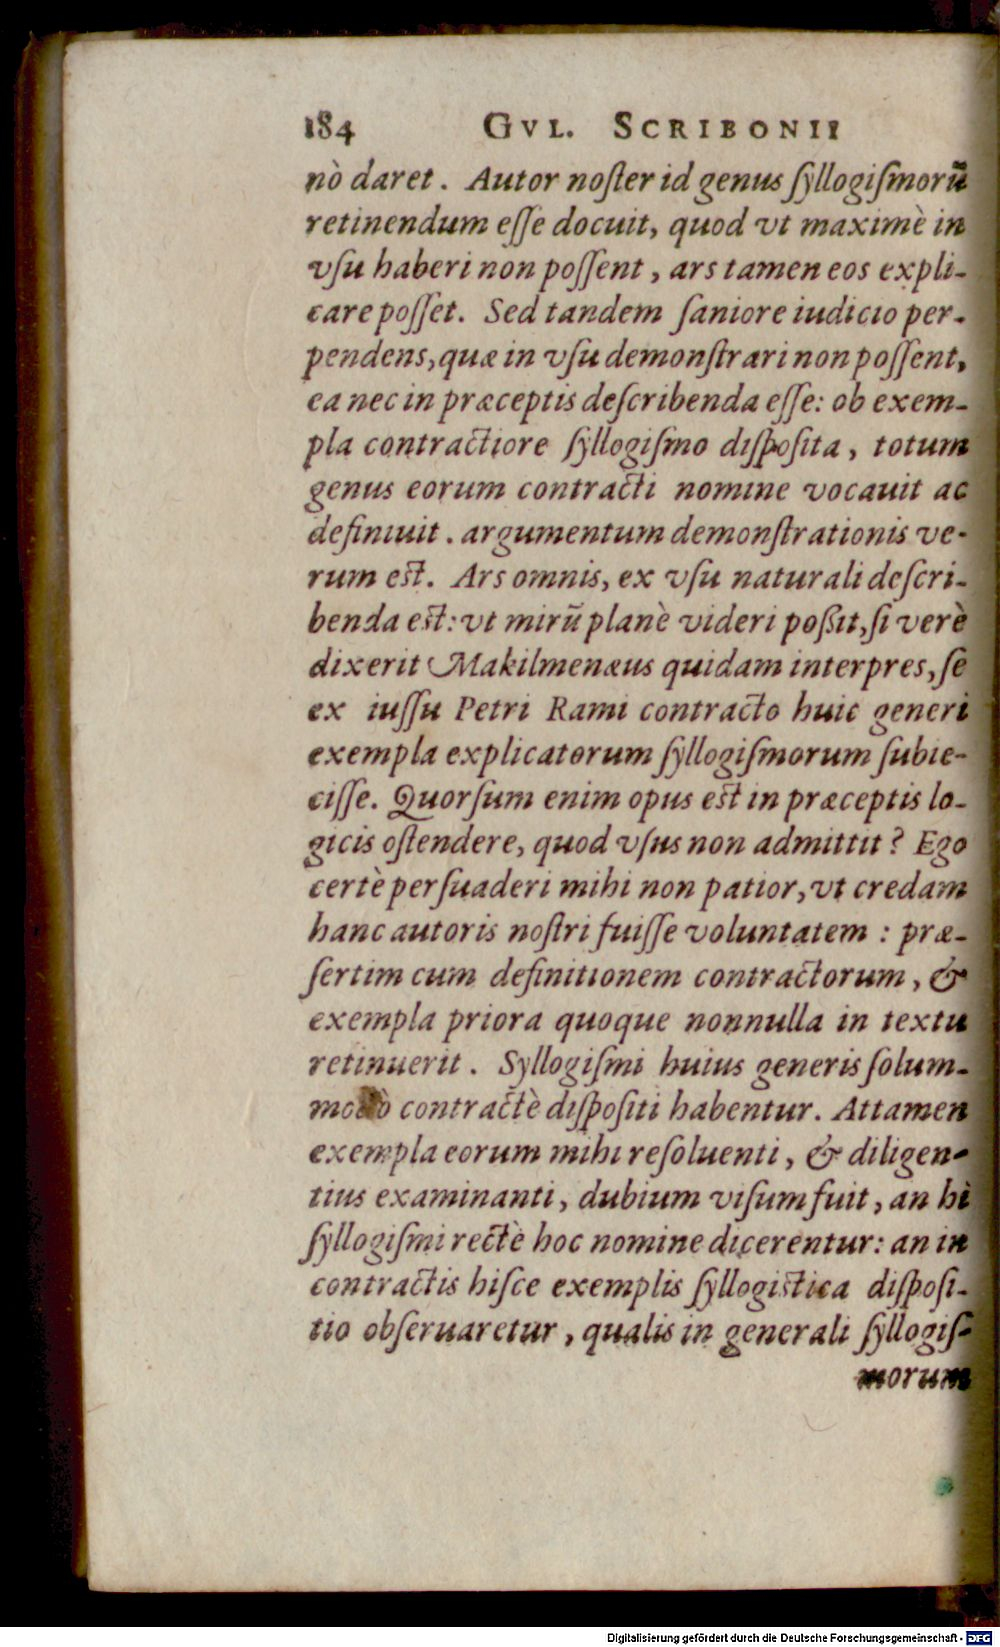 184 GVL. SCRIBONII
nò daret. Autor noſter id genus ſyllogiſmorũ
retinendum eſſe docuit, quod vt maximè in
vſu haberi non poſſent, ars tamen eos expli-
care poſſet. Sed tandem ſaniore iudicio per-
pendens, quæ in vſu demonſtrari non poſſent,
ea nec in præceptis deſcribenda eſſe: ob exem-
pla contractiore ſyllogiſmo diſpoſita, totum
genus eorum contracti nomine vocauit ac
definiuit. argumentum demonſtrationis ve-
rum est. Ars omnis, ex vſu naturali deſcri-
benda est: vt mirũ planè videri poßit, ſi verè
dixerit Makilmenæus quidam interpres, ſe
ex iuſſu Petri Rami contracto huic generi
exempla explicatorum ſyllogiſmorum ſubie-
ciſſe. Quorſum enim opus est in præceptis lo-
gicis oſtendere, quod vſus non admittit? Ego
certè perſuaderi mihi non patior, vt credam
hanc autoris noſtri fuiſſe voluntatem: præ-
ſertim cum definitionem contractorum, &
exempla priora quoque nonnulla in textu
retinuerit. Syllogiſmi huius generis ſolum-
modò contractè diſpoſiti habentur. Attamen
exempla eorum mihi reſoluenti, & diligen-
tius examinanti, dubium viſum fuit, an hi
ſyllogiſmi rectè hoc nomine dicerentur: an in
contractis hiſce exemplis ſyllogistica diſpoſi-
tio obſeruaretur, qualis in generali ſyllogiſ-
morum
Digitalisierung gefördert durch die Deutsche Forschungsgemeinschaft - DFG